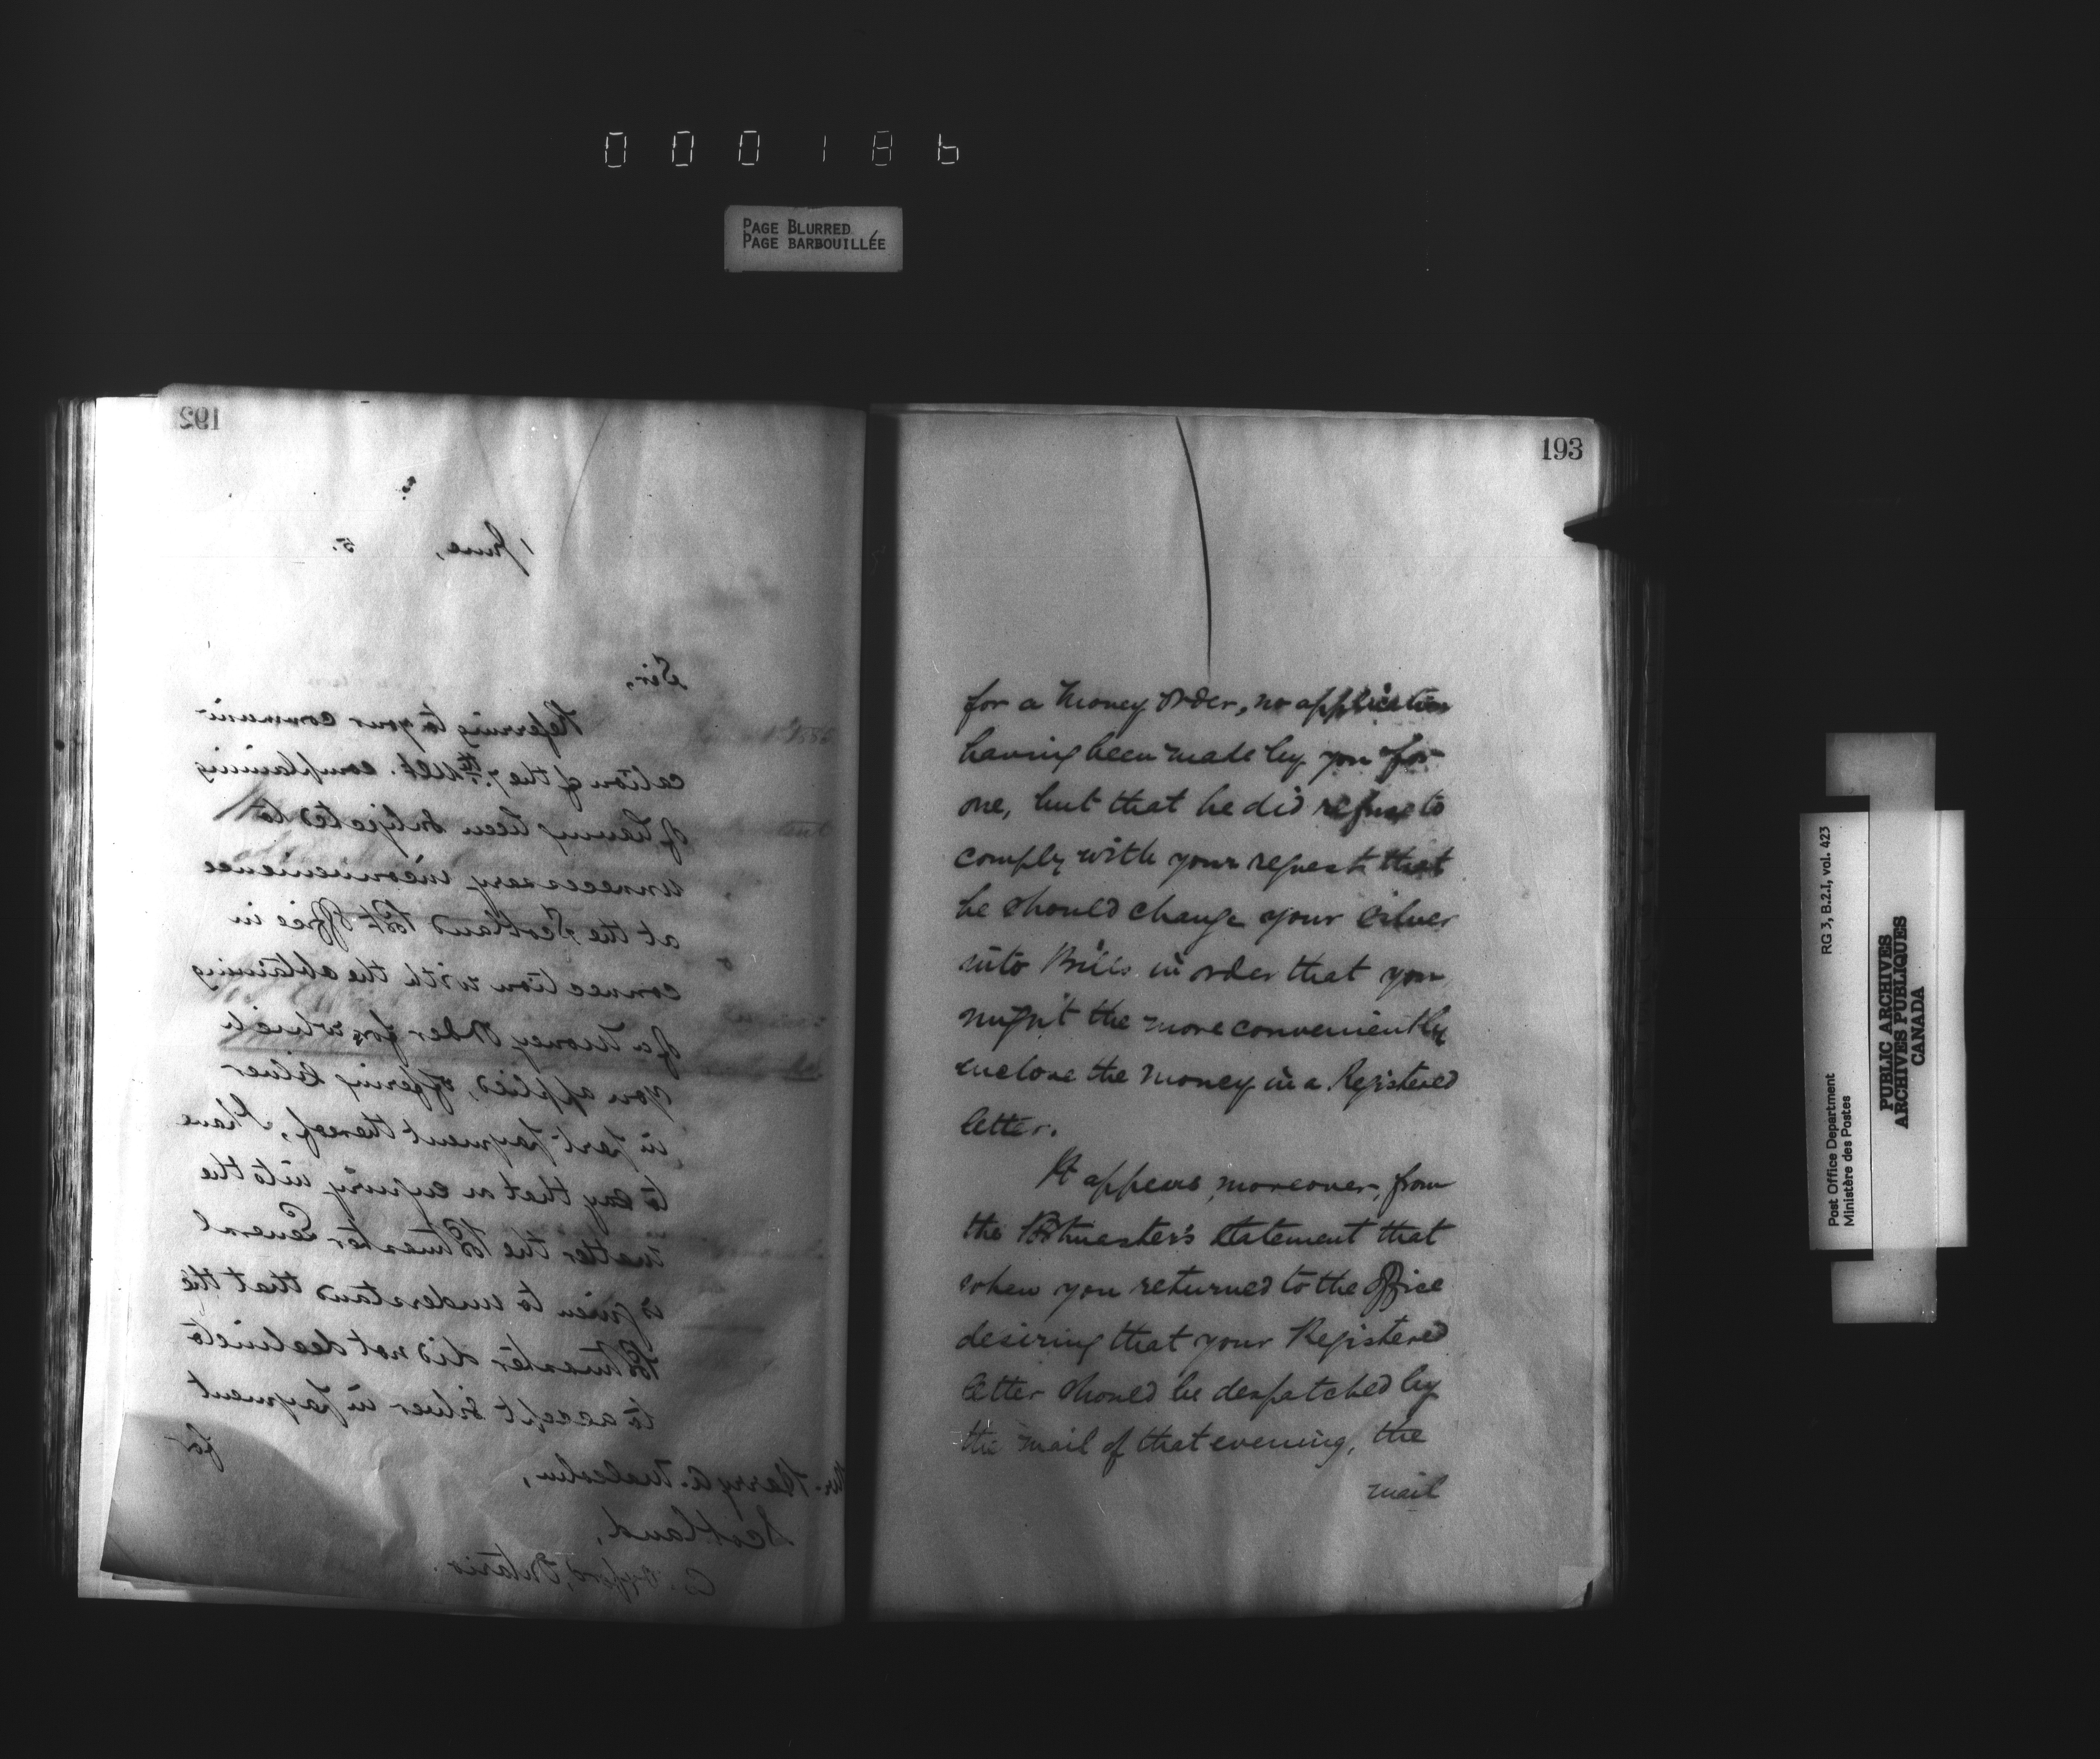 000186
PAGE BLURRED
PAGE BARBOUILLÉE
192
1 June, 5.
Sir,
Referring to your communi-
cation of the 7th. Ult. complaining
of having been subjected to
unnecessary inconvenience
at the Scotland Post Office in
connection with the obtaining
of a Money Order for which
you applied, offering Silver
in part payment thereof, I have
to say that on enquiry into the
matter the Postmaster General
is given to understand that the
Postmaster did not decline to
to accept Silver in payment
for
Mr. Harry A. Malcolm,
Scotland,
Co. Oxford, Ontario.
193
for a Money Order, no application
having been made by you for
one, but that he did refuse to
comply with your request that
he should change your Silver
into Bills in order that you
might the more conveniently
enclose the money in a Registered
letter.
It appears, moreover, from
the Postmaster's statement that
when you returned to the Office
desiring that your Registered
letter should be despatched by
the mail of that evening, the
mail
Post Office Department
Ministère des Postes
RG 3, B.2.I, vol. 423
PUBLIC ARCHIVES
ARCHIVES PUBLIQUES
CANADA